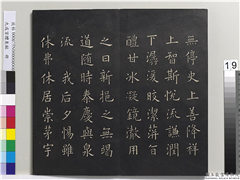 無停史上善降祥
上智斯悅流謙潤
下潺湲皎潔蓱旨
醴甘冰凝鏡澈用
之日新挹之無竭
道隨時泰慶與泉
流我后夕惕雖
休弗休居崇茅宇
19